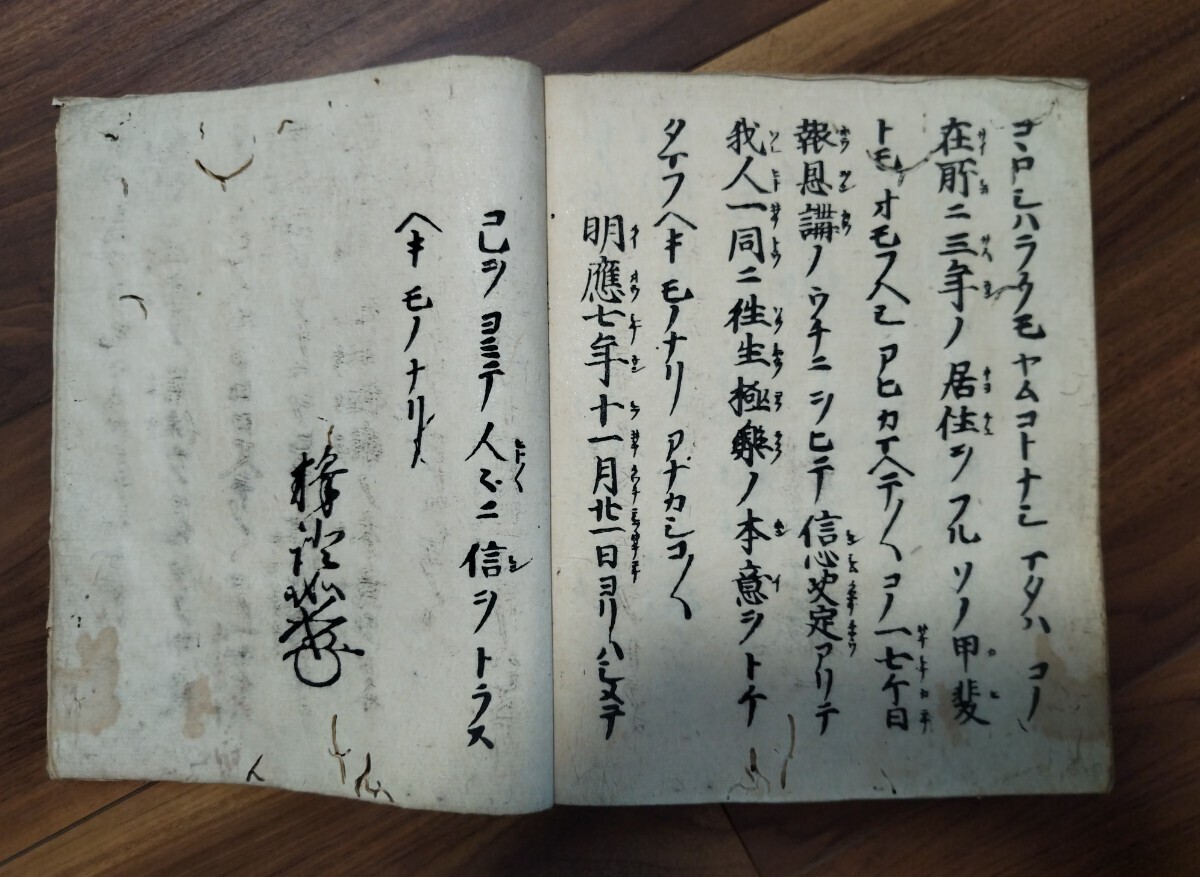 コヽロシハラクモヤムコトナシ イタハ コノ
在所ニ三年ノ居住ヲフル ソノ甲斐
トモ オモフヘシ アヒカマヘテ〱 コノ一七ケ日
報恩講ノウチニヲヒテ 信心决定アリテ
我人一同ニ徃生極樂ノ本意ヲトケ
タマフヘキモノナリ アナカシコ〱
明應七年十一月廿一日ヨリハシメテ
コレヲヨミテ人〻ニ信ヲトラス
ヘキモノナリ
釋證如